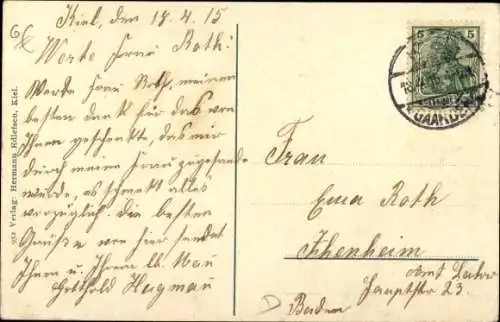 Kiel, den 18.4.15
Werte Frau Roth!
Werde Frau Roth, meinen
besten dank für das von
Ihnen geschenkte, das mir
durch meine Frau zugesandt
wurde, es schmekt alles
vorzüglich. Die besten
Grüße von hier sendet
Ihnen u. Ihrem lb. Man
Gotthold Hagmau
952 Verlag: Hermann Edlefsen, Kiel.
5 5
GAARDEN
Frau
Ema Roth
Ichenheim
Amt Lahr
Hauptstr 23.
Baden